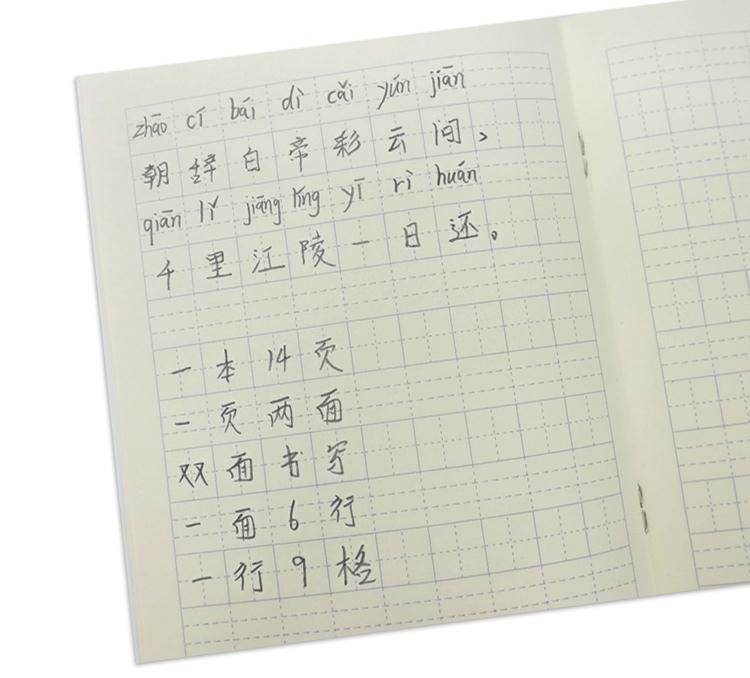 zhāo cí bái dì cǎi yún jiān
朝辞白帝彩云间，
qiān lǐ jiāng líng yī rì huán
千里江陵一日还。
一本14页
一页两面
双面书写
一面6行
一行9格